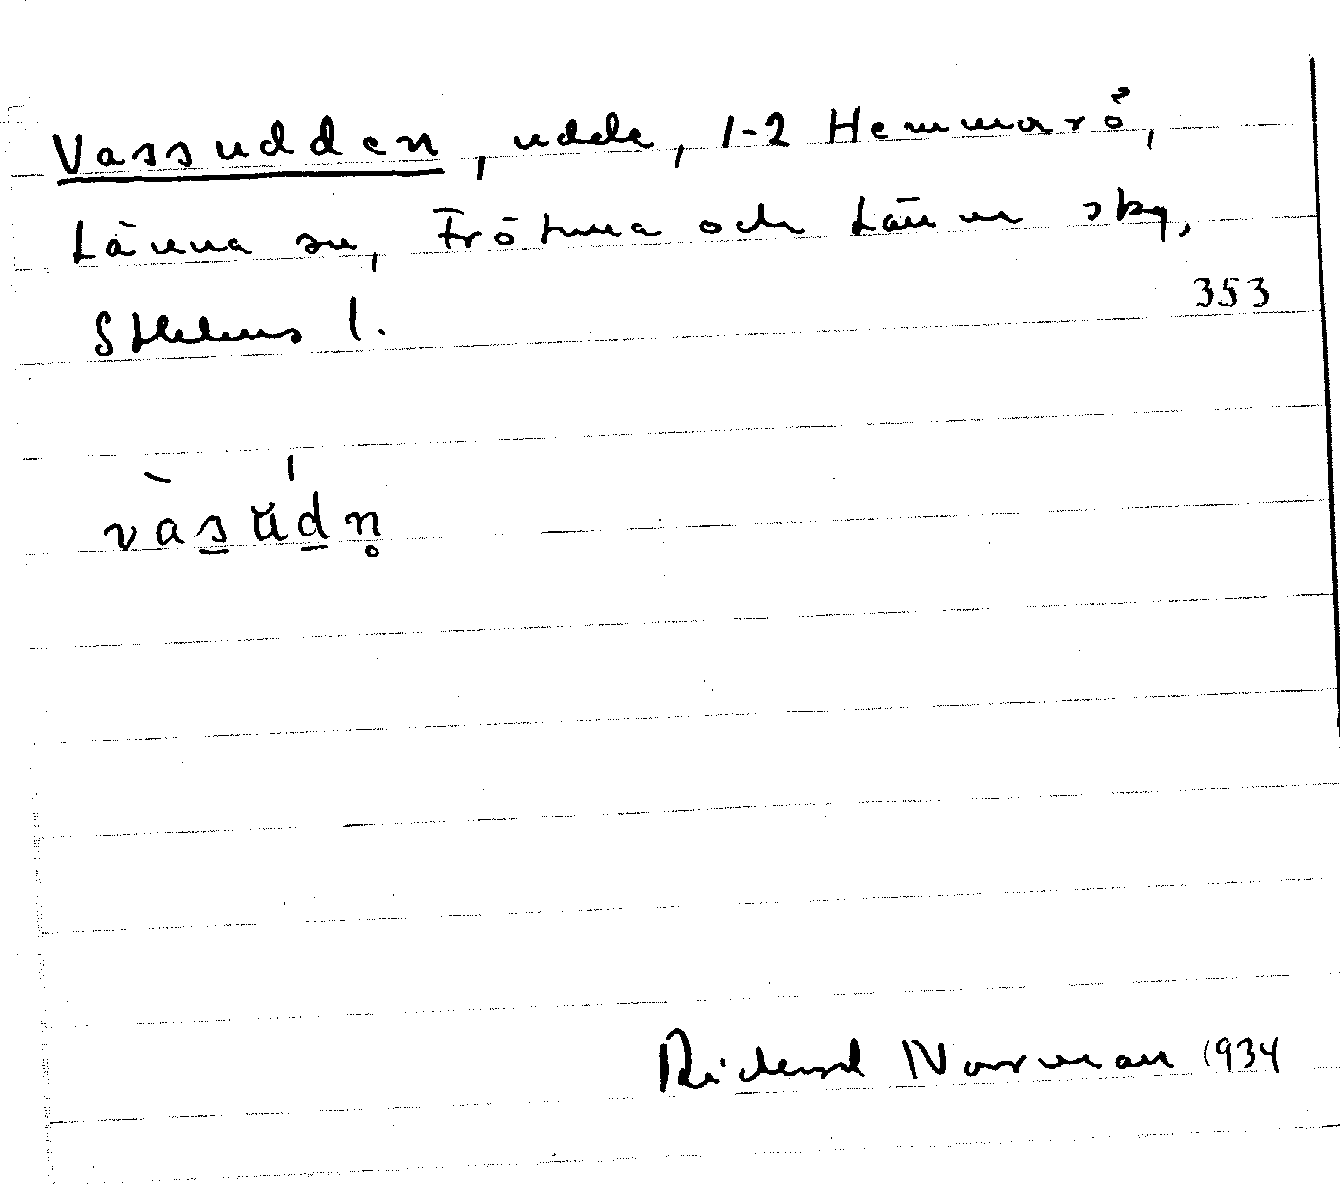 Vassudden, udde, 1-2 Hemmarö,
Länna sn, Frötuna och Länna skg,
Sthlms l.
353
vàsŭ́dn̥
Rickard Norman 1934